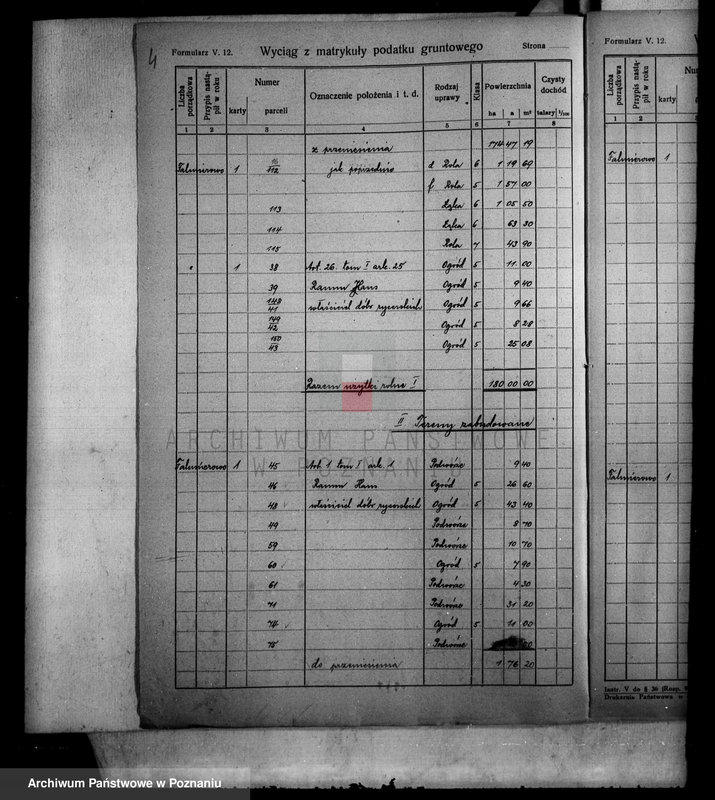 4
Formularz V. 12. Wyciąg z matrykuły podatku gruntowego Strona
Liczba porządkowa Przypis nastąpił w roku Numer karty parceli Oznaczenie położenia i t. d. Rodzaj uprawy Klasa Powierzchnia ha a m² Czysty dochód talary 1/100
1 2 3 4 5 6 7 8
z przeniesienia 174 47 19
1 16/112 jak poprzednio d Rola 6 1 19 69
f Rola 5 1 57 00
113 Łąka 6 1 05 50
114 Łąka 6 63 30
115 Rola 7 43 90
" 1 38 Art. 26. tom I ark. 25 Ogród 5 11 00
39 Ramm Hans Ogród 5 9 40
148/41 właściciel dóbr rycerskich Ogród 5 9 66
149/42 Ogród 5 8 28
150/43 Ogród 5 25 08
Razem użytki rolne I 180 00 00
II Tereny zabudowane
1 45 Art. 1 tom I ark. 1 Podwórze 9 40
46 Ramm Hans Ogród 5 26 60
48 właściciel dóbr rycerskich Ogród 5 43 40
49 Podwórze 8 70
59 Podwórze 10 70
60 Ogród 5 7 90
61 Podwórze 4 30
71 Podwórze 31 20
74 Ogród 5 11 00
75 Podwórze 00
do przeniesienia 1 76 20
ARCHIWUM PAŃSTWOWE
W POZNANIU
Formularz V. 12.
Liczba porządkowa Przypis nastąpił w roku karty
1 2
1
1
Instr. V do § 36 (Rozp.
Drukarnia Państwowa w
Archiwum Państwowe w Poznaniu